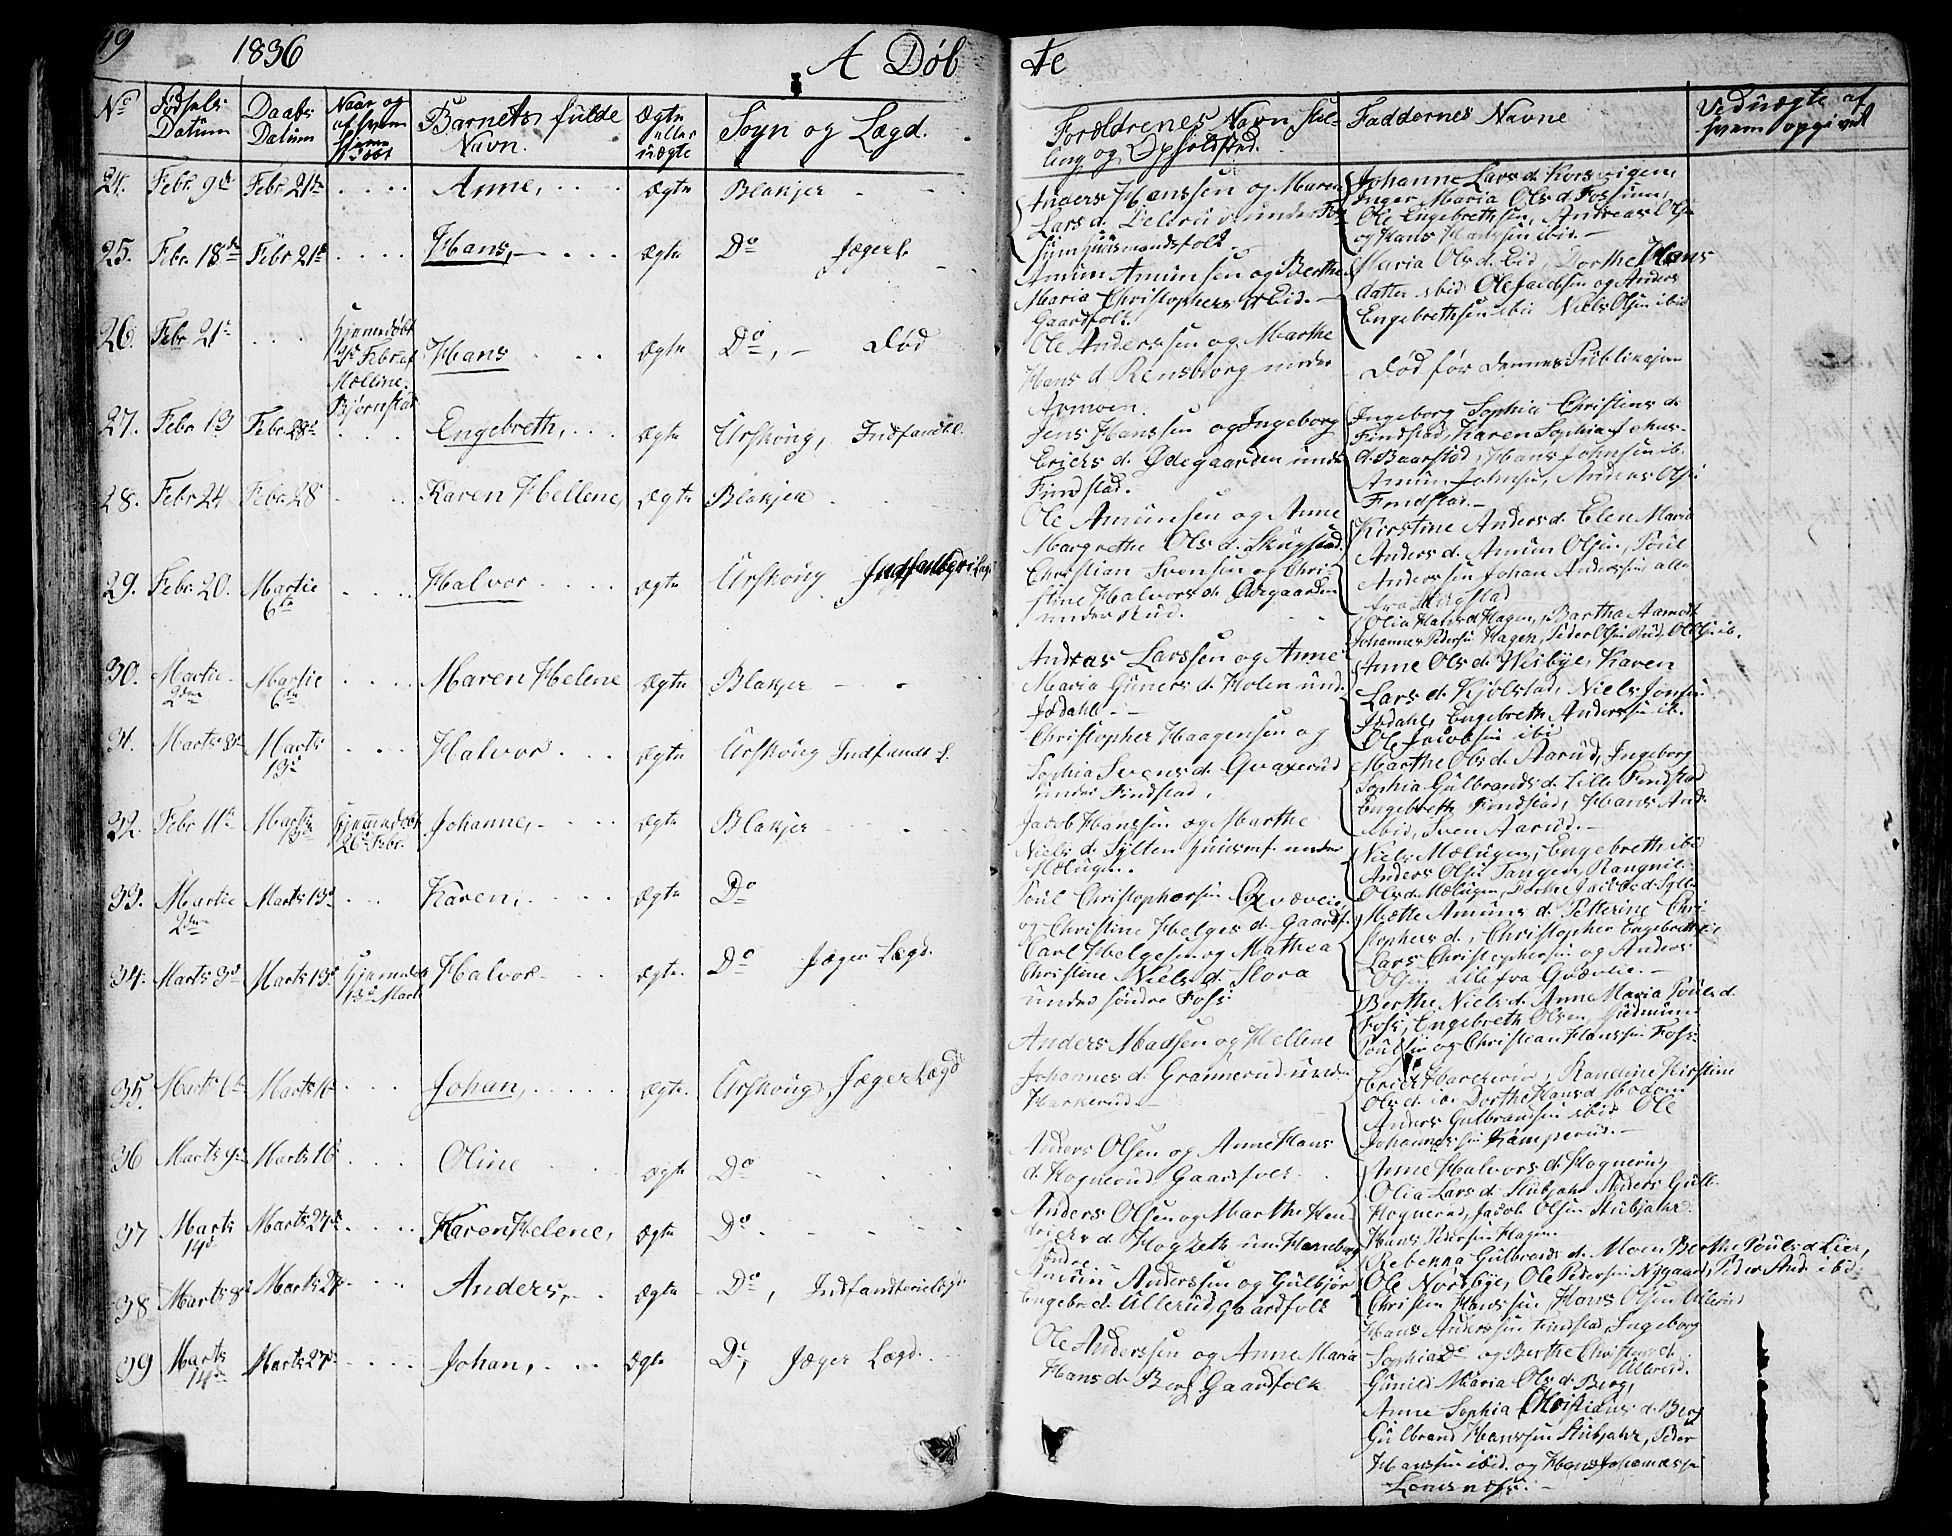 49 1836 A Döbte
No Fødsels Datum Daabs Datum Naar og af hvem Hjemmedöbt Barnets fulde Navn. Ægte eller uægte Sogn og Lægd. Forældrenes Navn Stilling og Opholdsted. Faddernes Navne Ved uægte af hvem opgivet
24. Febr. 9de Febr 21de Anne, ægte Blakjer
Anders Hanssen og Maren
Lars d.
huusmandsfolk.
Johanne Lars d.
Inger Maria Ols d. Fossum,
Ole Engebrethsen, Andreas Olsen
og Hans Hanssen ibid.
25. Febr. 18de Febr 21de Hans, ægte Do Jægerl.
Amun Amunsen og Berthe
Maria Christophers d. ibid.
Gaardfolk.
Maria Ols d. ibid, Dorthe Hans
datter ibid Ole Jacobsen og Anders
Engebrethsen ibid Niels Olsen ibid
26. Febr 21de Hjemmedöbt Febr. af Mælline. Bjørnstad Hans ægte Do, Død
Ole Anderssen og Marthe
Hans d. Rensborg under
Armoen.
Død før dennes Publikasjon
27. Febr 13 Febr. 28de Engebreth, ægte Urskoug, Indfandtl.
Jens Hanssen og Ingeborg
Erichs d. Ødegaarden under
Findstad.
Ingeborg Sophia Christens d.
Findstad, Karen Sophia Johns
d. Baarstad, Hans Johnsen ib.
Amun Johnsen, Anders Olsen
Findstad.
28. Febr 24 Febr. 28 Karen Hellene, ægte Blakjer
Ole Amunsen og Anne
Margrethe Ols d. Skugstad.
Kirstine Anders d. Elen Maria
Anders d. Amun Olsen, Poul
Anderssen Johan Anderssen alle
fra Skugstad
29. Febr. 20. Martie 6te Halvor ægte Urskoug Indfanteri Lægd
Christian Svensen og Christine
Halvors d. Ødegaarden
under Rud.
Olia Hans d. Hagen, Bartha Aamodt
Johannes Pedersen Hagen, Peder Olsen Rud. Ol Olsen ib.
30. Martie 2den Martie 6te Maren Helene ægte Blakjer
Andreas Larssen og Anne
Maria Guners d. Holen und.
Jødahl.
Anne Ols d. Wesbye, Karen
Lars d. Kjølstad, Niels Jonsen
Jødahl, Engebreth Anderssen ib.
Ole Jacobsen ibid
31. Marts 8de Marts 13de Halvor ægte Urskoug Indfandt L.
Christopher Haagensen og
Sophia Svens d. Qvaxerud
under Findstad.
Marthe Ols d. Aarud, Ingeborg
Sophia Gulbrands d. Lille Findstad
Engebreth Findstad, Hans And.
ibid, Sven Aarud.
32. Febr 11te Martie 13de Hjemmedöbt 26de Febr. Johanne, ægte Blakjer
Jacob Hanssen og Marthe
Niels d. Sylten huusmf. under
Mælugen.
Niels Mælugen, Engebreth ibid
Anders Olsen Tangen, Rangnil
Ols d. Mælugen, Dorthe Jacobs d. Sylte
33. Martie 2den Marts 13de Karen, ægte Do
Poul Christophersen Qvævlie,
og Christine Helges d. Gaardf.
Mæthe Amuns d. Petterine Christophers
d., Christopher Engebrethsen
Lars Christophersen og Anders
Olsen alle fra Qvævlie.
34. Marts 3de Marts 13de Hjemmedöbt Marts Halvor ægte. Do Jæger Lægd.
Carl Helgesen og Mathea
Christine Niels d. Flora
under søndre Foss
Berthe Niels d. Anne Maria Pouls d.
Foss, Engebreth Olsen, Gudmun
Poulsen og Christian Hanssen Foss.
35. Marts 6te Marts Johan, ægte. Urskoug, Jæger Lægd
Anders Madsen og Hellene
Johannes d. Grannerud under
Harkerud.
Erich Harkerud, Randine Kirstine
Ols d. ib. Dorthe Hans d. Modom
Anders Gulbransen ibid Ole
Johannessen Kamperud.
36 Marts 9de Marts 16 Oline ægte Do
Anders Olsen og Anne Hans
d. Hognerud Gaardfolk
Anne Halvors d. Hognerud,
Olia Lars d. Stubjahr Anders Gulb.
Hognerud, Jacob Olsen Stubjahr
Hans Pedersen Hagen
37 Marts 14de Marts 27de Karen Helene, ægte Do
Anders Olsen og Marthe Hendrichs
d. Hogseth un. Hameborg
søndre.
Rebenna Gulbrands d. Moen Berthe Pouls d. Lier,
Ole Nordbye, Ole Pedersen Nygaard, Peder And. ibid.
38 Marts 8de Marts 27 Anders, ægte Do, Indfandterielægd
Amun Anderssen og Gulbjør
Engebr. d. Ullerud Gaardfolk
Christen Hanssen Hans Olsen Ullerud
Hans Anderssen Findstad, Ingeborg
Sophia Do og Berthe Christens d.
Ullerud.
39 Marts 14de Marts 27de Johan, ægte Do, Jæger Lægd.
Ole Anderssen og Anne Maria
Hans d. Berg Gaardfolk
Gunild Maria Ols d. Berg,
Anne Sophia Christians d. Berg
Gulbrand Hanssen Stubjahr, Peder
Hanssen ibid. og Hans Johannessen
Lonesnæss.